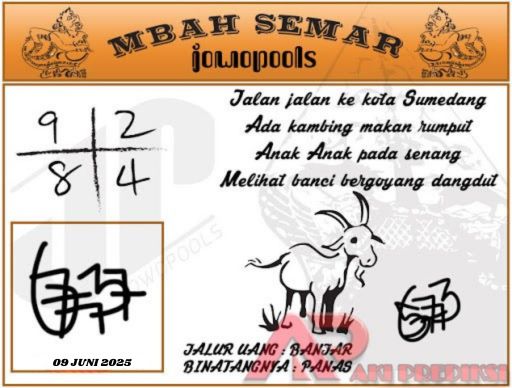 MBAH SEMAR
jowopools
9 2
8 4
Jalan jalan ke kota Sumedang
Ada kambing makan rumput
Anak Anak pada senang
Melihat banci bergoyang dangdut
JOWOPOOLS
09 JUNI 2025
JALUR UANG : BANJAR
BINATANGNYA : PANAS
AKI PREDIKSI